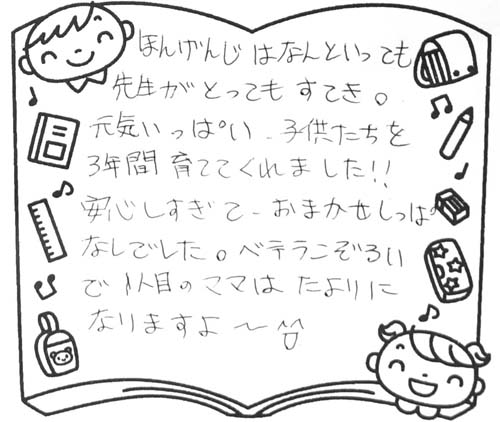 ほんげんじ はなんといっても
先生がとっても すてき。
元気いっぱい、子供たちを
3年間 育ててくれました!!
安心しすぎて、おまかせしっぱ
なしでした。ベテランぞろい
で 1人目の ママは たよりに
なりますよ〜